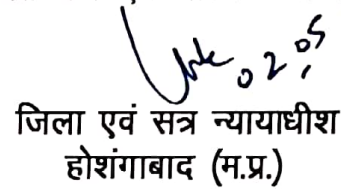 02.05
जिला एवं सत्र न्यायाधीश
होशंगाबाद (म.प्र.)